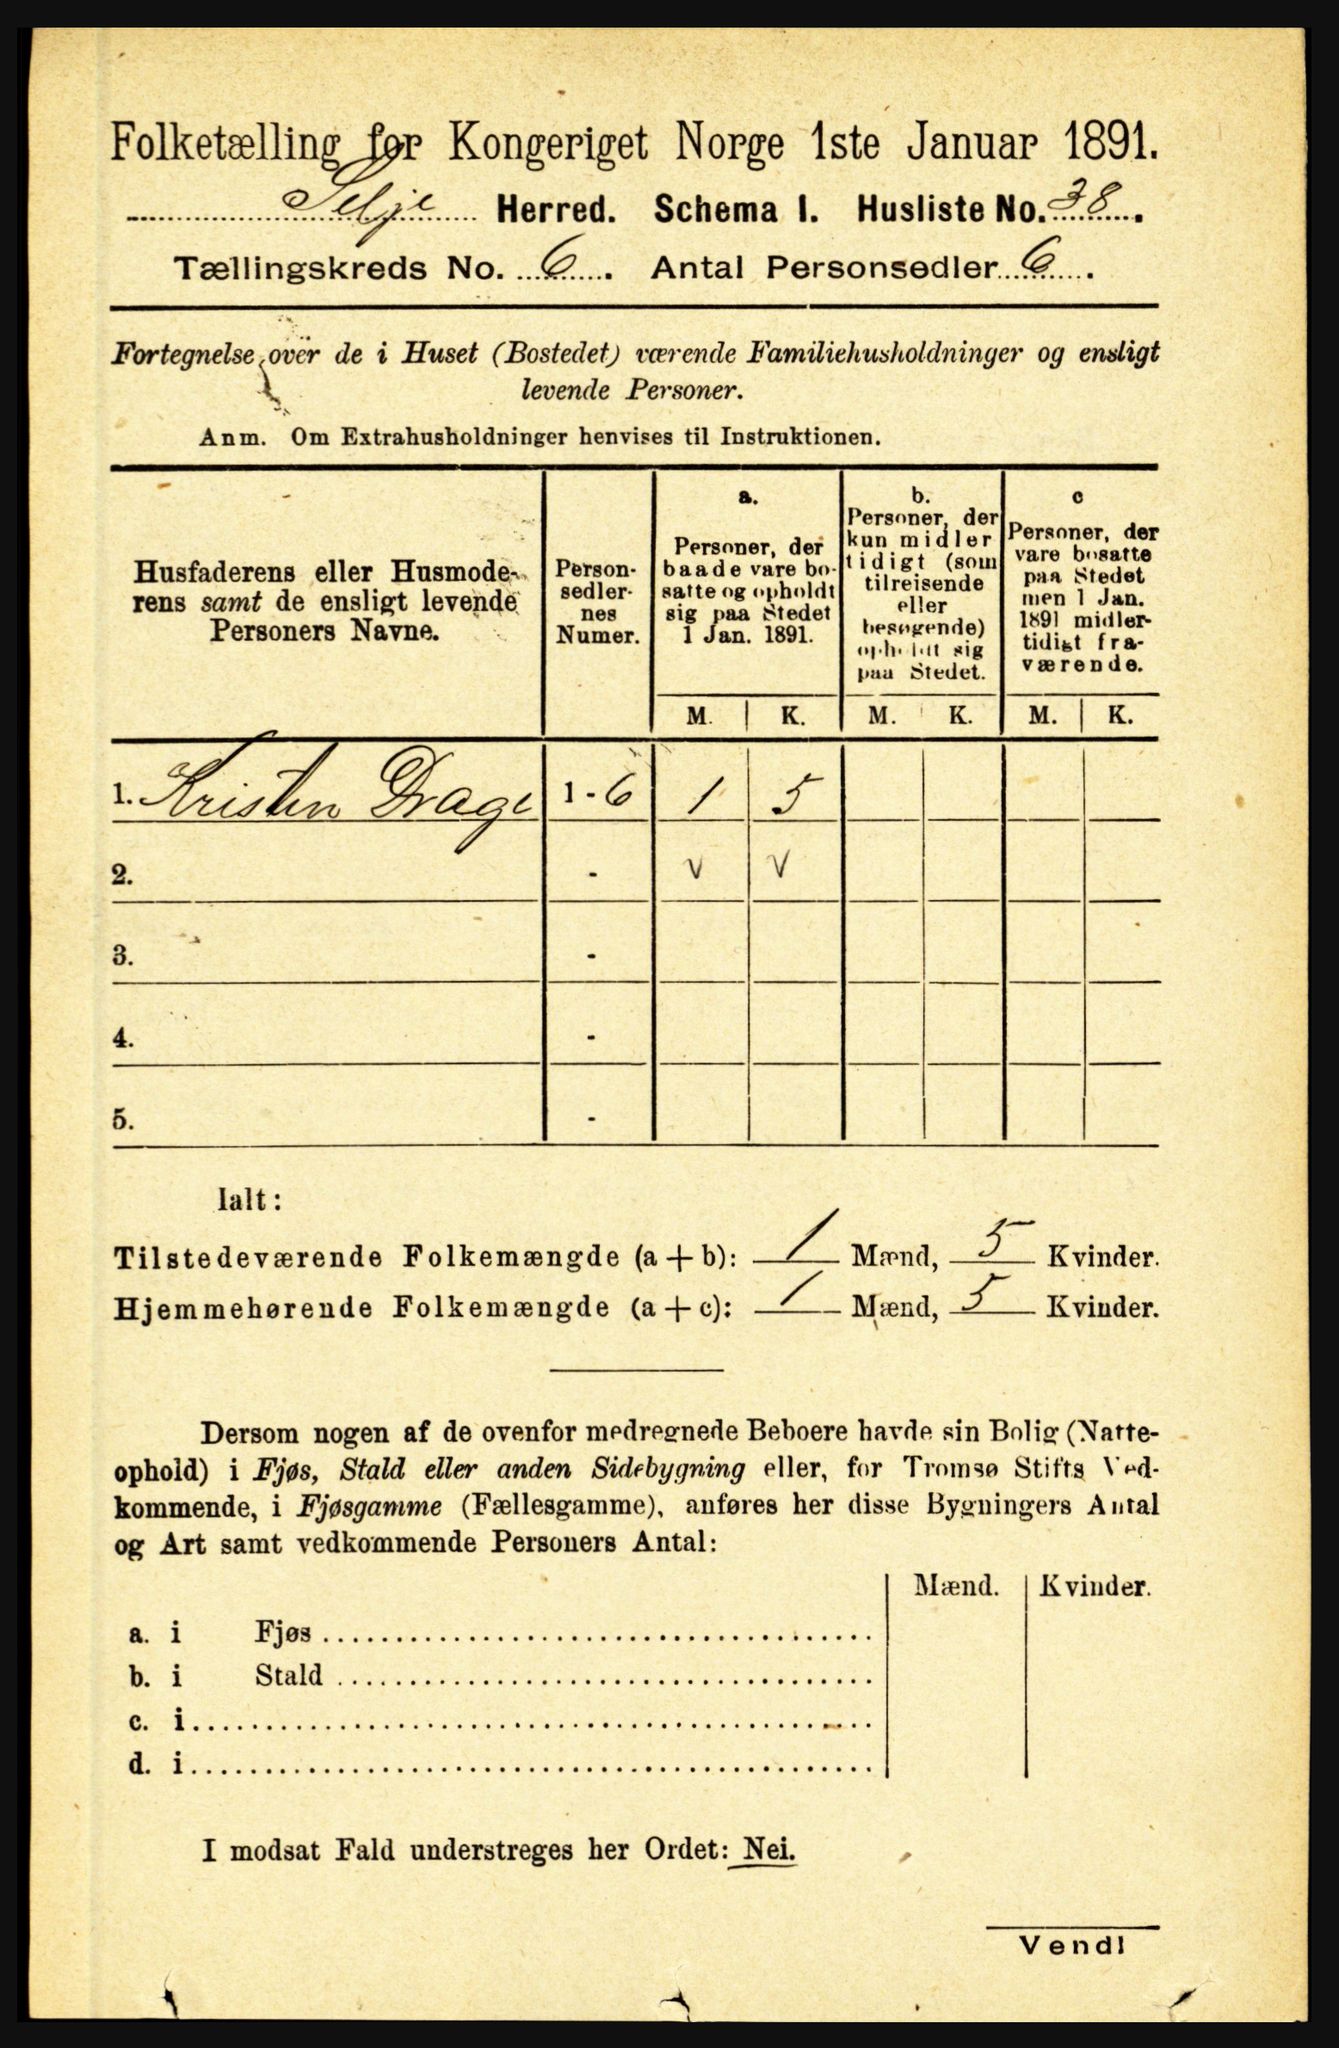 Folketælling for Kongeriget Norge 1ste Januar 1891.
Selje Herred. Schema I. Husliste No. 38.
Tællingskreds No. 6. Antal Personsedler 6.
Fortegnelse over de i Huset (Bostedet) værende Familiehusholdninger og ensligt
levende Personer.
Anm. Om Extrahusholdninger henvises til Instruktionen.
Husfaderens eller Husmode-
rens samt de ensligt levende
Personers Navne.
Person-
sedler-
nes
Numer.
a.
Personer, der
baade vare bo-
satte og opholdt
sig paa Stedet
1 Jan. 1891.
b.
Personer, der
kun midler
tidigt (som
tilreisende
eller
besøgende)
opholdt sig
paa Stedet.
c
Personer, der
vare bosatte
paa Stedet
men 1 Jan.
1891 midler-
tidigt fra-
værende.
M. K. M. K. M. K.
1. Kristen Drage 1 - 6 1 5
2. - v v
3. -
4. -
5. -
Ialt:
Tilstedeværende Folkemængde (a + b): 1 Mænd, 5 Kvinder.
Hjemmehørende Folkemængde (a + c): 1 Mænd, 5 Kvinder.
Dersom nogen af de ovenfor medregnede Beboere havde sin Bolig (Natte-
ophold) i Fjøs, Stald eller anden Sidebygning eller, for Tromsø Stifts Ved-
kommende, i Fjøsgamme (Fællesgamme), anføres her disse Bygningers Antal
og Art samt vedkommende Personers Antal:
Mænd. Kvinder.
a. i Fjøs
b. i Stald
c. i
d. i
I modsat Fald understreges her Ordet: Nei.
Vend!